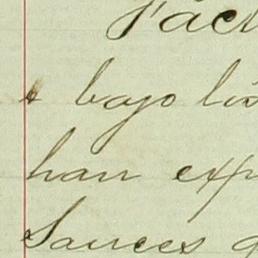 Fact
& bajo los
han exp
Sauces q